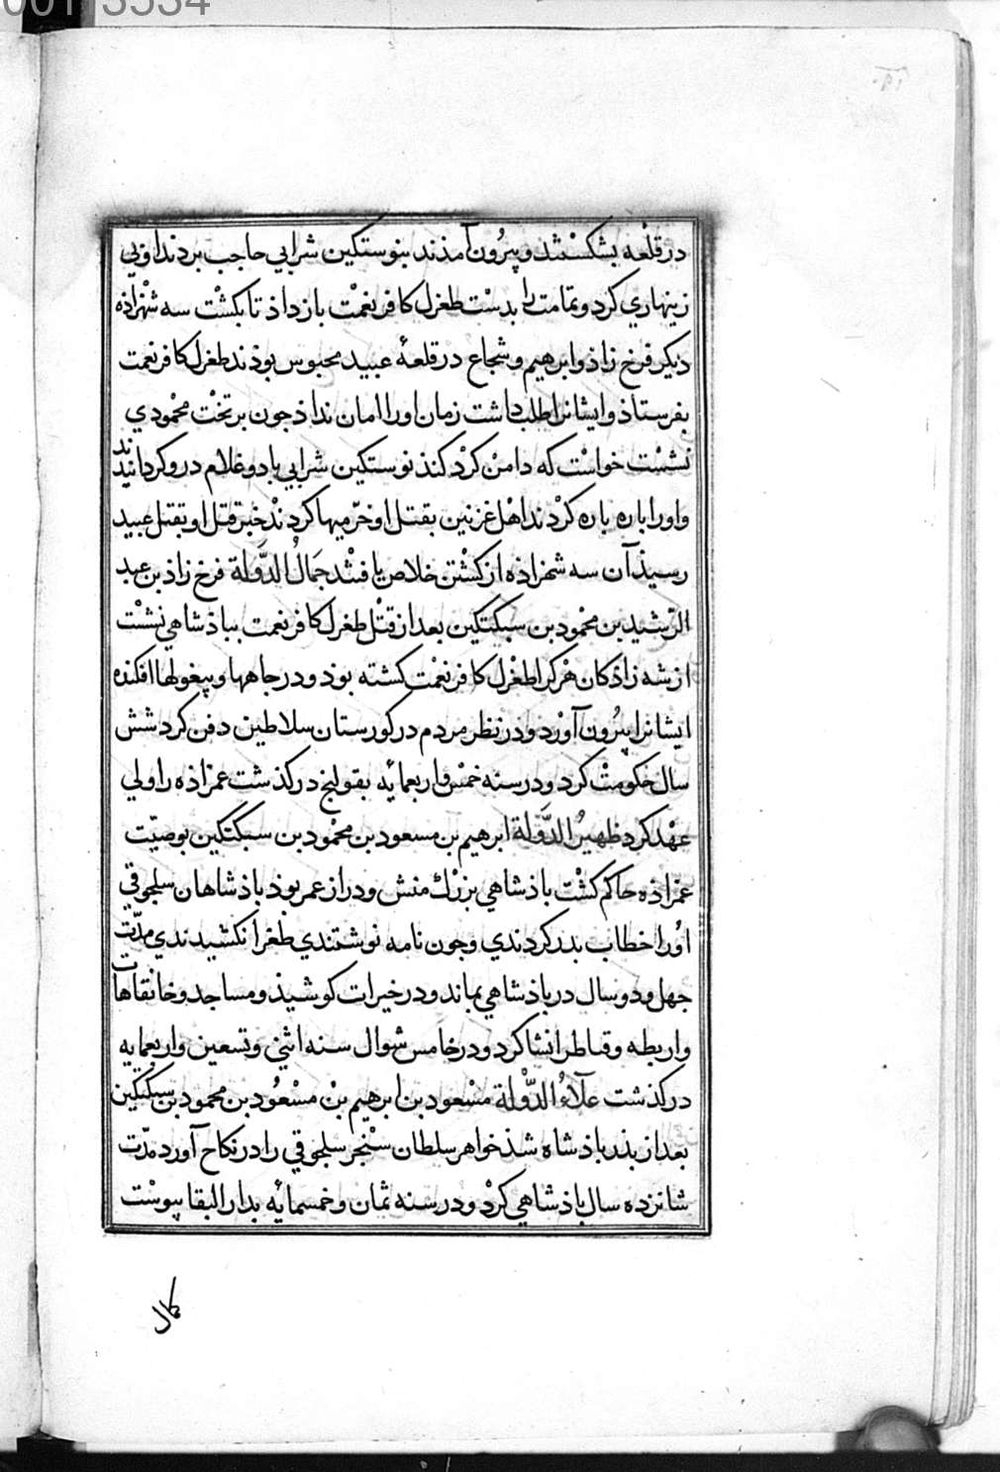 00173534
در قلعه بشکستند و بیرون آمذند بنوستکین شرابی حاجب بردند او بی
زینهاری کرد و تمامت را بدست طغرل کافر نعمت باز داذ تا بکشت سه شهزاذه
دیکر فرخ زاذ و ابرهیم و شجاع در قلعهٔ عبید محبوس بوذند طغرل کافر نعمت
بفرستاذ و ایشانرا طلب داشت زمان او را امان نداذ جون بر تخت محمودی
نشست خواست که دامن کرد کند نوستکین شرابی با دو غلام در و کردانیدند
و او را باره باره کردند اهل غزنین بقتل او خرمیها کردند خبر قتل او بقتل عبید
رسیذ آن سه شهزاذه از کشتن خلاص یافتند جمال الدوله فرخ زاذ بن عبد
الرشید بن محمود بن سبکتکین بعد از قتل طغرل کافر نعمت بباذشاهی نشست
از شه زاذکان هر کرا طغرل کافر نعمت کشته بوذ و در جاهها و بیغولها افکنده
ایشانرا بیرون آورد و در نظر مردم در کورستان سلاطین دفن کرد شش
سال حکومت کرد و در سنه خمس و اربعمایه بقولنج در کذشت عمزاذه را ولی
عهد کرد ظهیر الدولة ابرهیم بن مسعود بن محمود بن سبکتکین بوصیت
عمزاذه حاکم کشت باذشاهی بزرك منش و دراز عمر بوذ باذشاهان سلجوقی
او را خطاب بدر کردندی و جون نامه نوشتندی طغرا نکشیدندی مدت
جهل و دو سال در باذشاهی بماند و در خیرات کوشیذ و مساجد و خانقاهات
و اربطه و قناطر انشا کرد و در خامس شوال سنه اثنی و تسعین و اربعمایه
در کذشت علآء الدولة مسعود بن ابرهیم بن مسعود بن محمود بن سبکتکین
بعد از بذر باذشاه شذ خواهر سلطان سنجر سلجوقی را در نکاح آورد مدت
شانزده سال باذشاهی کرد و در سنه ثمان و خمسمایه بدار البقا پیوست
کمال